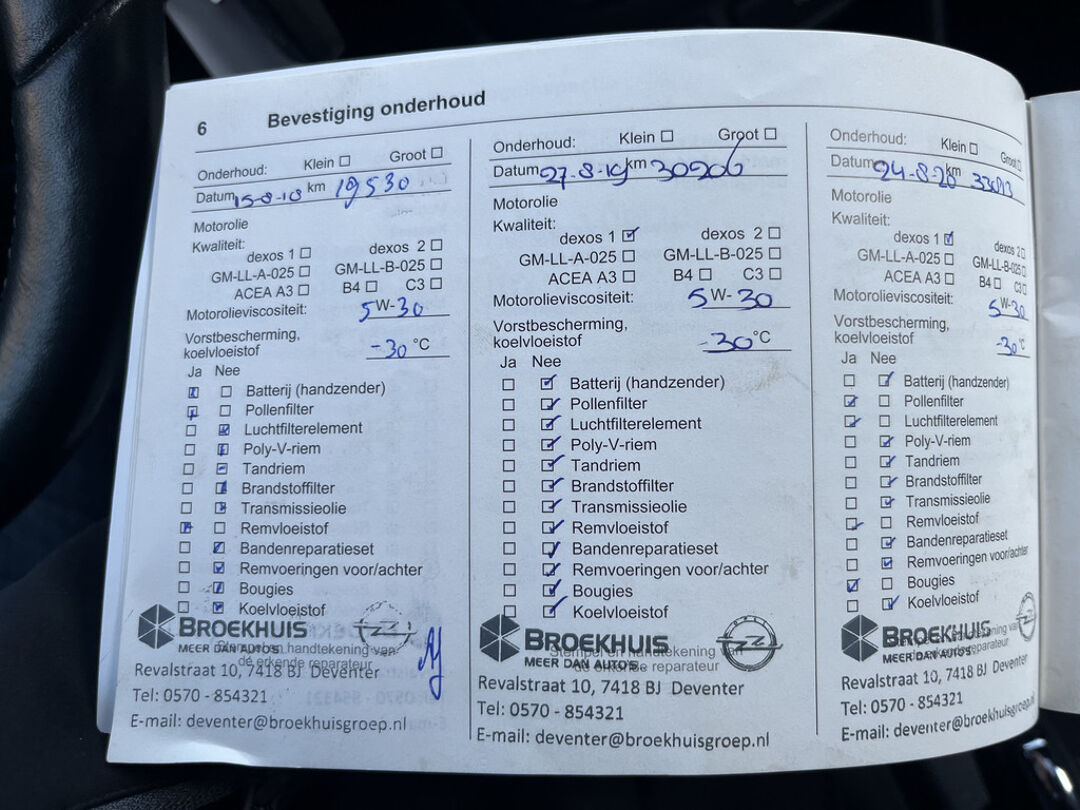 6 Bevestiging onderhoud
Onderhoud: Klein ☐ Groot ☐
Datum 15-8-18 km 19530
Motorolie
Kwaliteit:
dexos 1 ☐ dexos 2 ☐
GM-LL-A-025 ☐ GM-LL-B-025 ☐
ACEA A3 ☐ B4 ☐ C3 ☐
Motorolieviscositeit: 5W-30
Vorstbescherming,
koelvloeistof -30 °C
Ja Nee
Batterij (handzender)
Pollenfilter
Luchtfilterelement
Poly-V-riem
Tandriem
Brandstoffilter
Transmissieolie
Remvloeistof
Bandenreparatieset
Remvoeringen voor/achter
Bougies
Koelvloeistof
BROEKHUIS
MEER DAN AUTO'S
en handtekening van
de erkende reparateur
Revalstraat 10, 7418 BJ Deventer
Tel: 0570 - 854321
E-mail: deventer@broekhuisgroep.nl
Onderhoud: Klein ☐ Groot ☐
Datum 27-8-19 km 30206
Motorolie
Kwaliteit:
dexos 1 ☑ dexos 2 ☐
GM-LL-A-025 ☐ GM-LL-B-025 ☐
ACEA A3 ☐ B4 ☐ C3 ☐
Motorolieviscositeit: 5W-30
Vorstbescherming,
koelvloeistof -30 °C
Ja Nee
Batterij (handzender)
Pollenfilter
Luchtfilterelement
Poly-V-riem
Tandriem
Brandstoffilter
Transmissieolie
Remvloeistof
Bandenreparatieset
Remvoeringen voor/achter
Bougies
Koelvloeistof
BROEKHUIS
MEER DAN AUTO'S
Stempel en handtekening van
de erkende reparateur
Revalstraat 10, 7418 BJ Deventer
Tel: 0570 - 854321
E-mail: deventer@broekhuisgroep.nl
Onderhoud: Klein ☐ Groot ☐
Datum 24-8-20 km
Motorolie
Kwaliteit:
dexos 1 ☑ dexos 2 ☐
GM-LL-A-025 ☐ GM-LL-B-025 ☐
ACEA A3 ☐ B4 ☐ C3 ☐
Motorolieviscositeit: 5W-30
Vorstbescherming,
koelvloeistof -30 °C
Ja Nee
Batterij (handzender)
Pollenfilter
Luchtfilterelement
Poly-V-riem
Tandriem
Brandstoffilter
Transmissieolie
Remvloeistof
Bandenreparatieset
Remvoeringen voor/achter
Bougies
Koelvloeistof
BROEKHUIS
MEER DAN AUTO'S
Revalstraat 10, 7418 BJ Deventer
Tel: 0570 - 854321
E-mail: deventer@broekhuisgroep.n